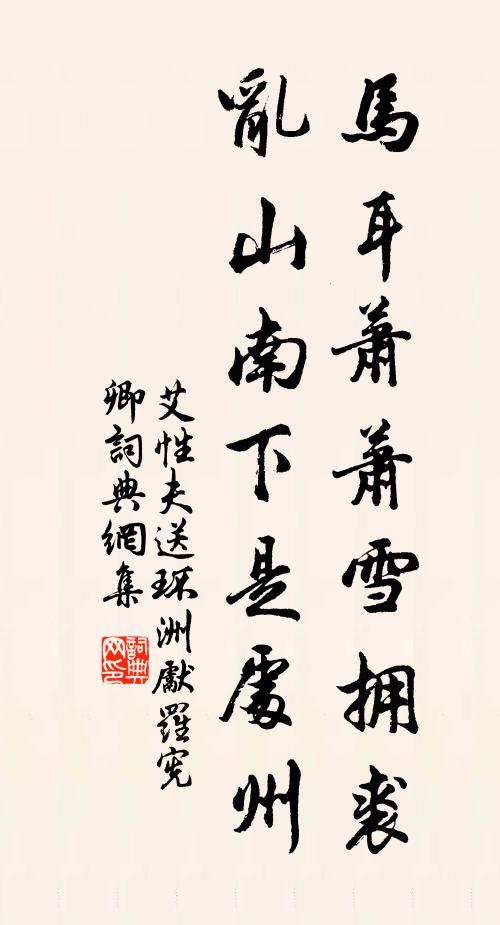 馬耳蕭蕭雪拥裘
亂山南下是處州
艾性夫送环洲獻羅宪
卿詞典網集
詞典
网印